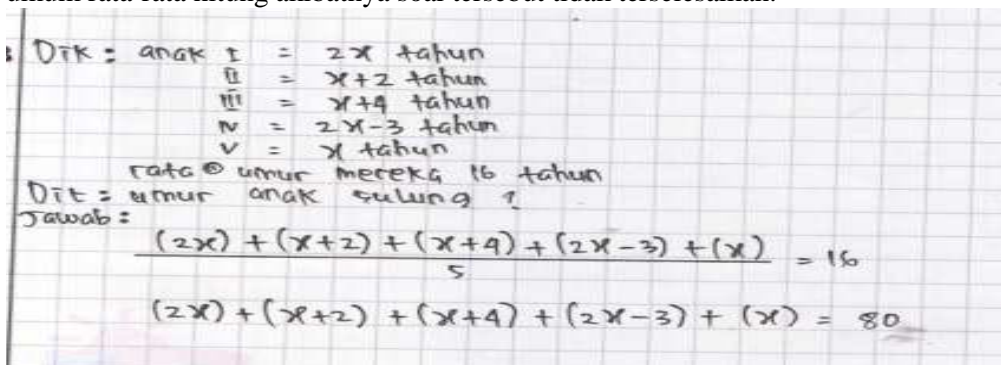 Dik : anak I = 2x tahun
II = x+2 tahun
III = x+4 tahun
IV = 2x-3 tahun
V = x tahun
rata² umur mereka 16 tahun
Dit : umur anak sulung ?
Jawab :
(2x) + (x+2) + (x+4) + (2x-3) + (x) / 5 = 16
(2x) + (x+2) + (x+4) + (2x-3) + (x) = 80